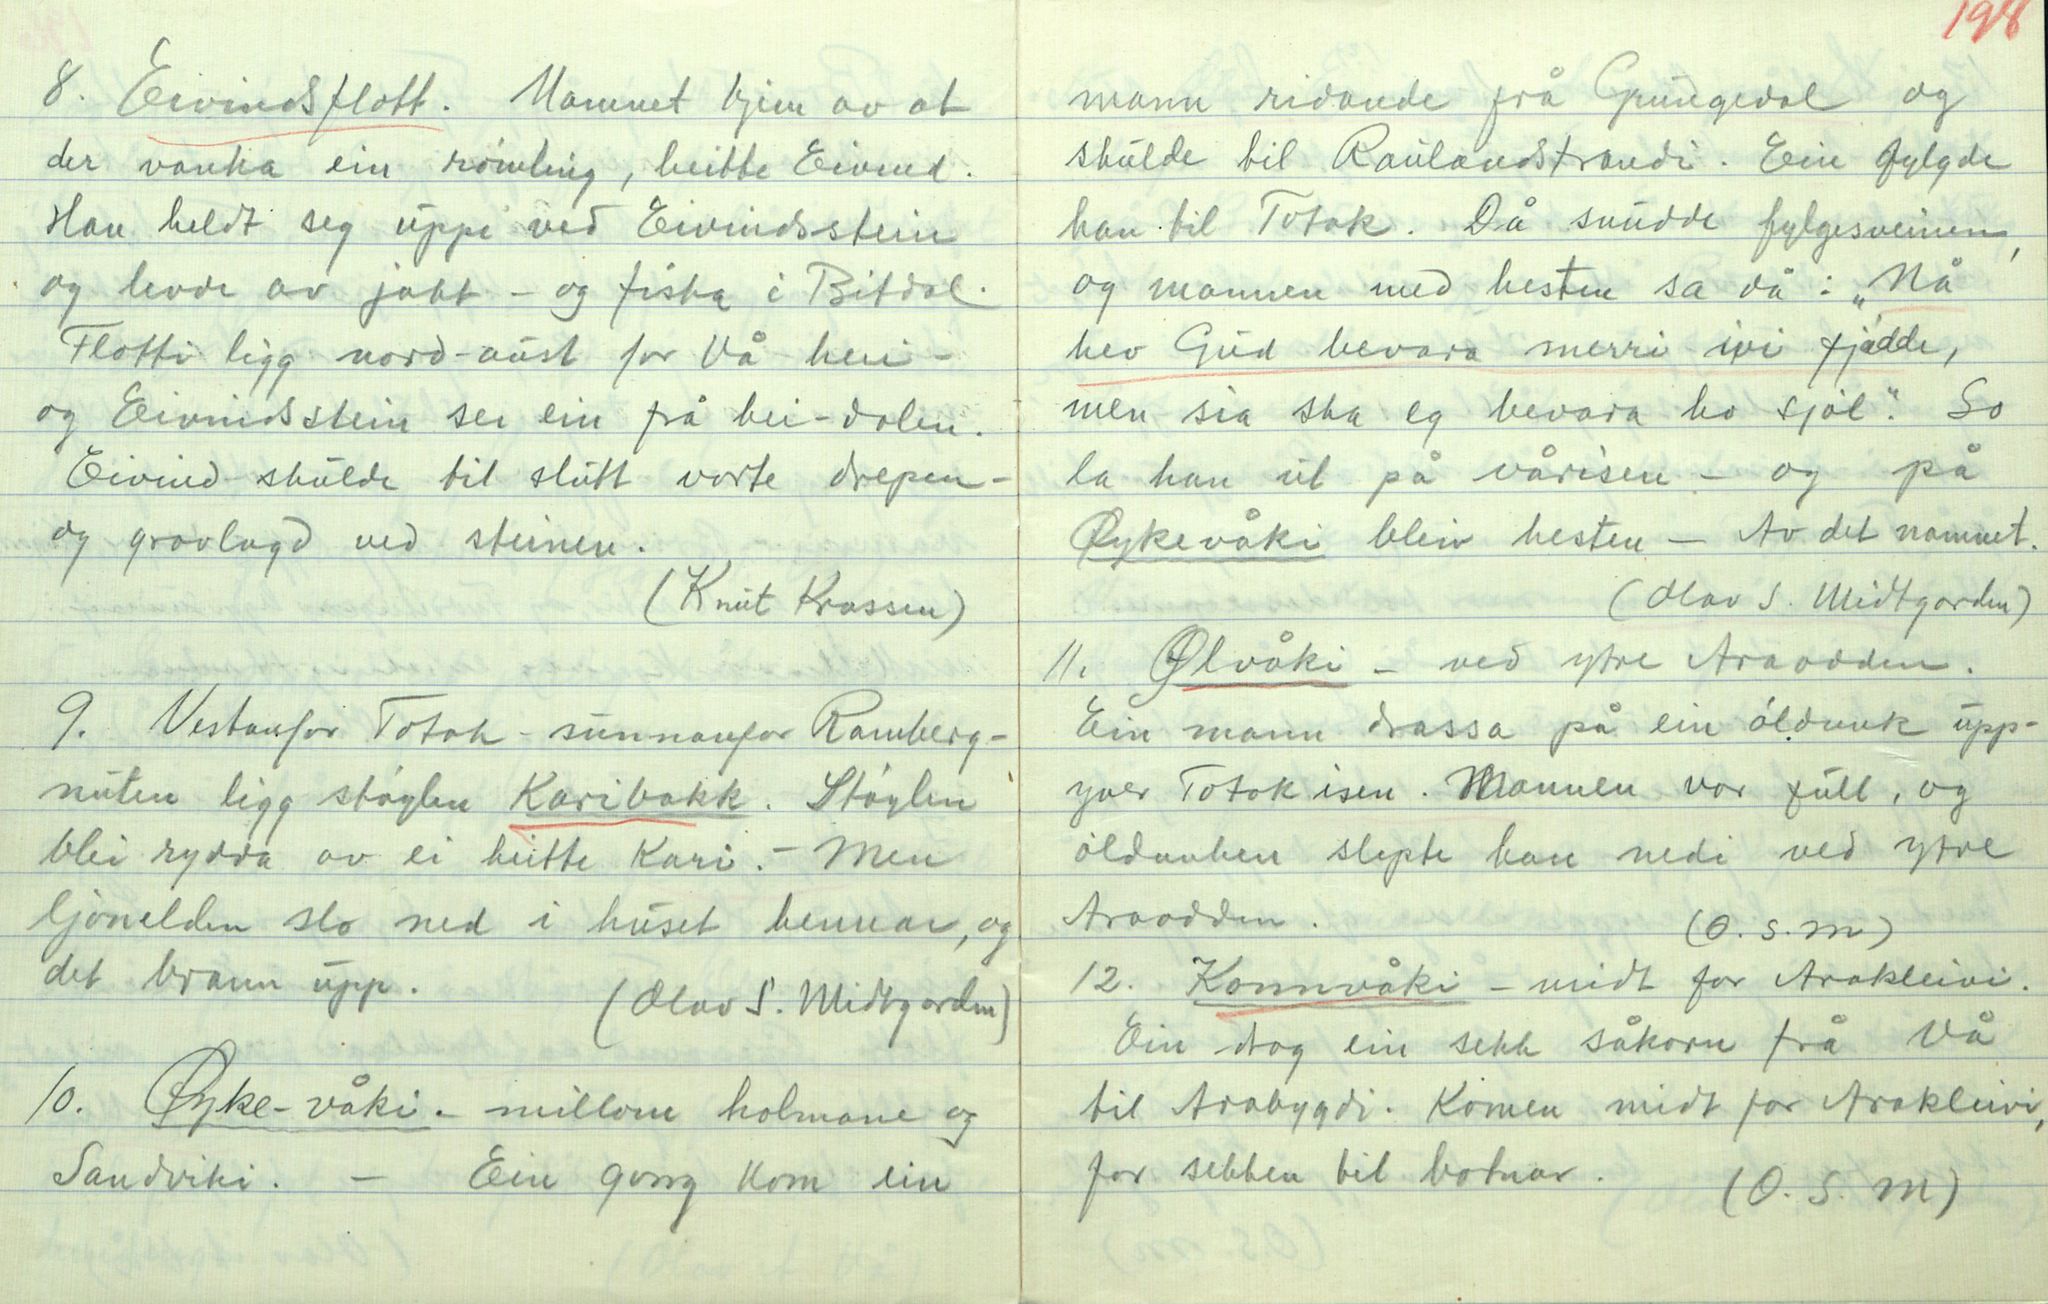 8. Eivindsflott. Namnet kjem av at
der vanka ein rømling, heitte Eivind.
Han heldt seg uppe ved Eivindsstein
og levde av jakt - og fiska i Bitdal.
Flotti ligg nord-aust for Vå hei -
og Eivindsstein ser ein frå hei-dalen.
Eivind skulde til slutt vorte drepen -
og gravlagd ved steinen.
(Knut Krossen)
9. Vestanfor Totak - sunnanfor Ramberg-
nuten ligg støylen Karibakk. Støylen
blei rydda av ei heitte Kari. - Men
ljonelden slo ned i huset hennar, og
det brann upp.
(Olav S. Midtgarden)
10. Øyke-våki. - millom holmane og
Sandviki. - Ein gong kom ein
198
mann ridande frå Grungedal og
skulde til Raulandstrandi. Ein fylgde
han til Totak. Då snudde fylgesveinen,
og mannen med hesten sa då: „Nå
hev Gud bevara merri ivi fjødde,
men sia ska eg bevara ho sjøl". So
la han ut på vårisen - og på
Øykevåki bleiv hesten - Av det namnet.
(Olav S. Midtgarden)
11. Ølvåki - ved ytre Araodden.
Ein mann drassa på ein øldunk upp-
yver Totakisen. Mannen var full, og
øldunken slepte han nedi ved ytre
Araodden.
(O. S. M)
12. Konnvåki - midt for Arakleivi.
Ein drog ein sekk såkorn frå Vå
til Arabygdi. Komen midt for Arakleivi,
for sekken til botnar.
(O. S. M)